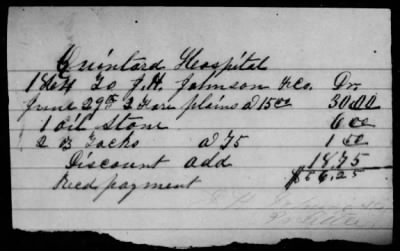 Quintard Hospital
1864 To J.H. Johnson & Co. Dr.
June 29th 2 Fore plains a 15.00 30.00
1 oil stone 6 00
2 B Tacks a 75 1 50
Discount add 18.75
Recd payment $56.25